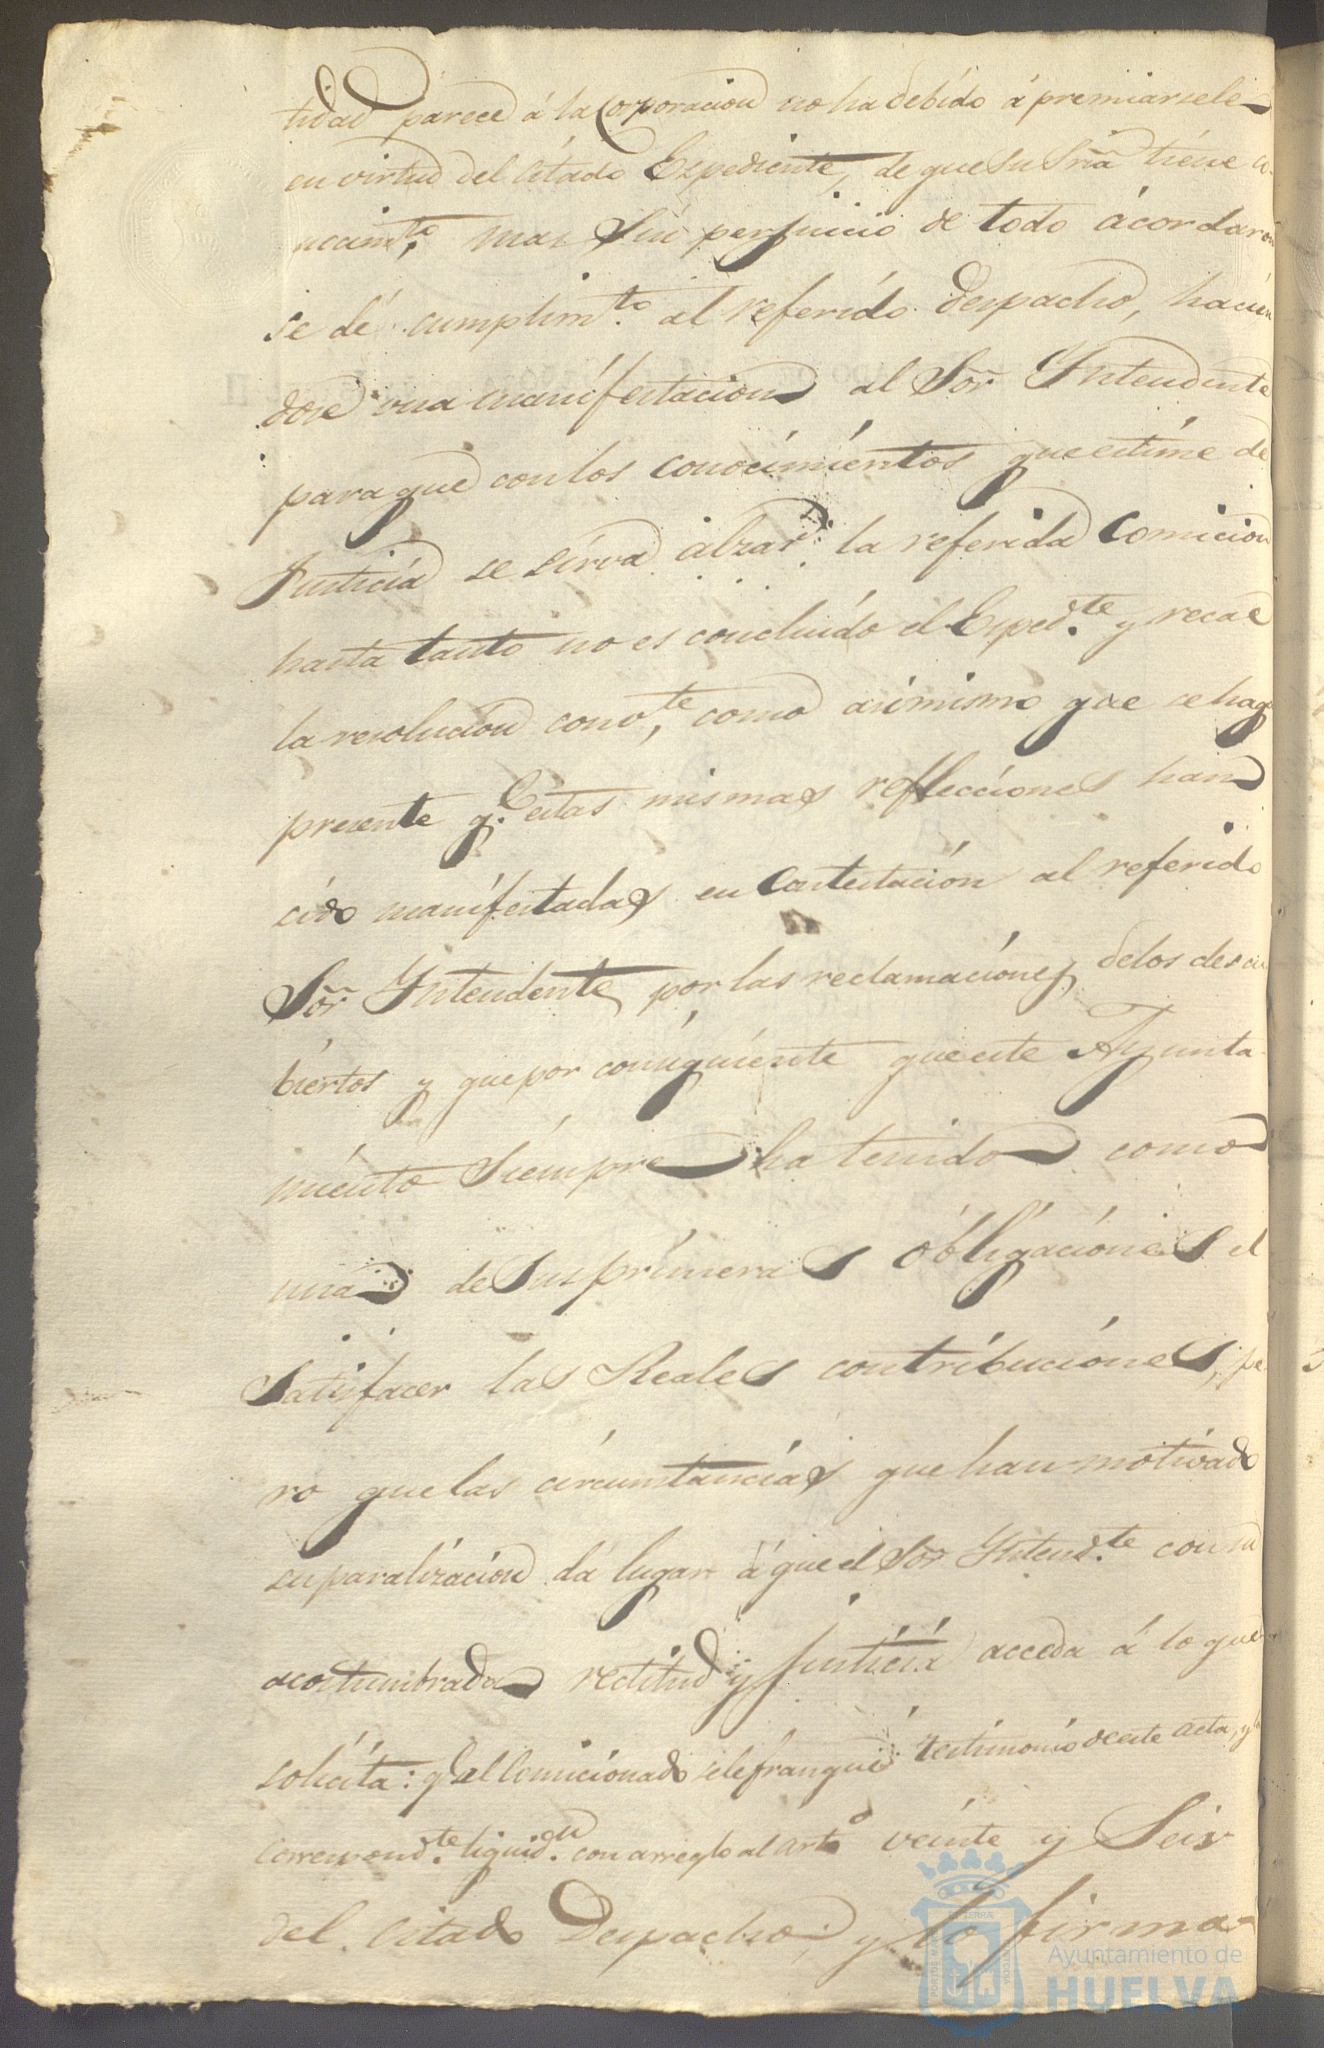 tidad parece á la Corporacion no ha debido ápremiarsele
en virtud del citado Expediente, de que Su Sria tiene co-
nocimto, mas sin perjuicio de todo acordaron
se dé cumplimto. al referido Despacho, hacien
dose una manifestacion al Sor Yntendente
para que con los conocimientos que estime de
Justicia se sirva alzar la referida Comicion
hasta tanto no es concluido el Expedte. y recae
la resolucion convte, como asimismo que se haga
precente q. estas mismas reflecciones han
cido manifestadas en Contestación al referido
Sor Yntendente por las reclamaciones delos descu
biertos y que por consiguiente que este Ayunta-
miento Siempre ha tenido como
una de Sus primeras óbligaciones el
Satisfacer las Reales contribuciones, pe
ro que las circunstancias que han motivado
su paralizacion dá lugar á que el Sor Yntendte. con su
acostumbrada rectitud y Justicia acceda á lo que
solicita: y q. al Comicionado sele franqué testimonio de este Acta, y la
correspondte. liquidon. con arreglo al arto veinte y Seis
del citado Despacho; y lo firma-
Ayuntamiento de
HUELVA